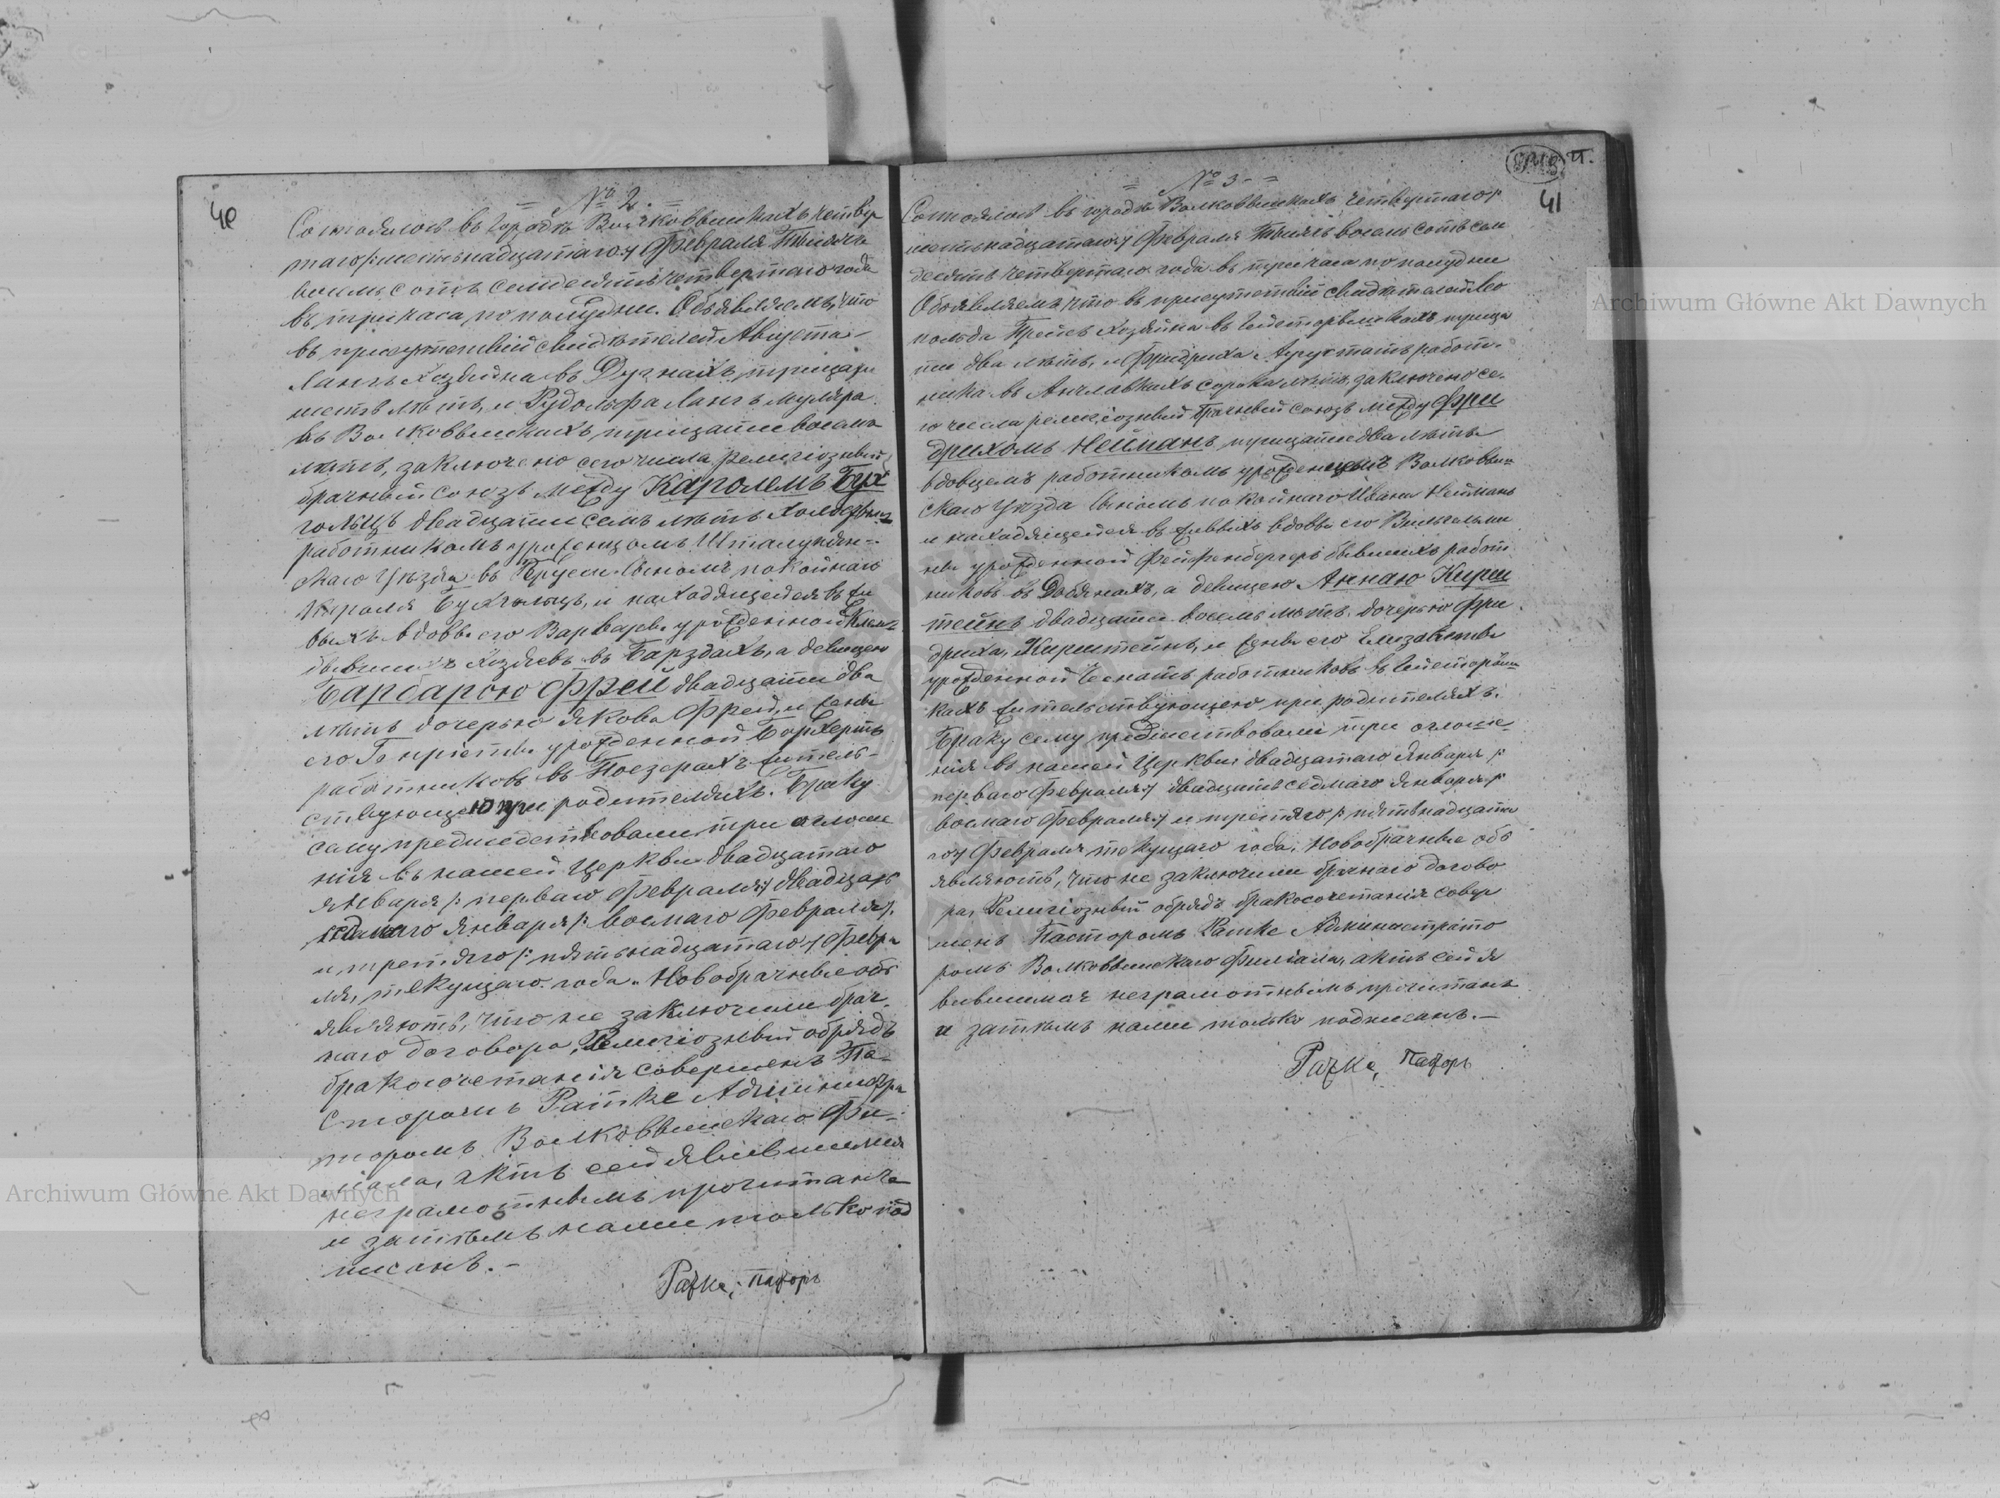 40
= № 2. =
Состоялось въ городѣ Волковышкахъ четвер
таго /: шестьнадцатаго :/ Февраля Тысяча
восемь сотъ семдесятъ четвертаго года
въ три часа по полудни. Объявляемъ, что
въ присутствіи свидѣтелей Августа
Лангъ хозяина въ Дугнахъ, тридцати
шесть лѣтъ, и Рудольфа Лангъ муляра
въ Волковышкахъ тридцати восемь
лѣтъ, заключено сего числа религіозный
брачный союзъ между Каролемъ Бух
гольцъ двадцати семь лѣтъ холостымъ
работникомъ, уроженцомъ Шталупян-
скаго уѣзда въ Пруссіи сыномъ покойнаго
Кароля Бухгольцъ, и находящейся въ жи
выхъ вдовы его Варвары урожденной
бывшихъ хозяевъ въ Барздахъ, а девицею
Барбарою Фрей двадцати два
лѣтъ дочерью Якова Фрей, и жены
его Генріетты урожденной Борхертъ
работниковъ въ Поезерахъ житель-
ствующею при родителяхъ. Браку
сему предшествовали три оглаше
нія въ нашей Церквы двадцатаго
Января /: перваго Февраля :/ двадцать
седмаго Января /: восмаго Февраля :/
и третяго /: пятьнадцатаго :/ Февра
ля, текущаго года. Новобрачные объ
являютъ, что не заключили брач-
наго договора, Религіозный обрядъ
бракосочетанія совершенъ Па-
сторомъ Ратке Администра
торомъ Волковышскаго Фи-
ліала, актъ сей явившимся
неграмотнымъ прочитанъ
и затѣмъ нами только под
писанъ. —
Ратке, Пасторъ
41
= № 3 - =
Состоялось въ городѣ Волковышкахъ четвертаго /:
шестьнадцатаго :/ Февраля Тысяч восемь сотъ сем
десятъ четвертаго года въ три часа по полудни
Объявляемъ, что въ присутствіи свидѣтелей Лео
польда Хозяина въ тридца
ти два лѣтъ, и Фридриха работ-
ника въ сорока лѣтъ, заключено се-
го числа религіозный брачный союзъ между Фри
дрихомъ Нейманъ тридцати два лѣтъ
вдовцемъ работникомъ уроженцемъ Волковыш
скаго уѣзда сыномъ покойнаго Ивана Нейманъ
и находящейся въ живыхъ вдовы его Вильгельми
ны урожденной бывшихъ работ
никовъ въ а девицею Аннаю Кирш
тейнъ двадцати восемь лѣтъ, дочерью Фри
дриха, Кирштейнъ, и жены его Елизаветы
урожденной работниковъ въ
кахъ жительствующею при родителяхъ.
Браку сему предшествовали три оглаше-
нія въ нашей Церквы двадцатаго Января /:
перваго Февраля :/ двадцать седмаго Января /:
восмаго Февраля :/ и третяго /: пятьнадцата
го :/ Февраля текущаго года. Новобрачные объ
являютъ, что не заключили брачнаго догово
ра, Религіозный обрядъ бракосочетанія совер
шенъ Пасторомъ Ратке Администрато
ромъ Волковышскаго Филіала, актъ сей я
вившимся неграмотнымъ прочитанъ
и затѣмъ нами только подписанъ. —
Ратке, Пасторъ
Archiwum Główne Akt Dawnych
Archiwum Główne Akt Dawnych